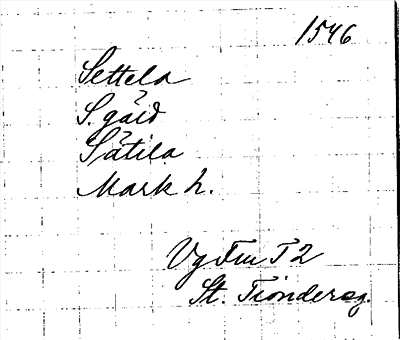 1546
Settela
S. gård
Sätila
Mark h.
Vg Fm T 2
St. Tiondereg.